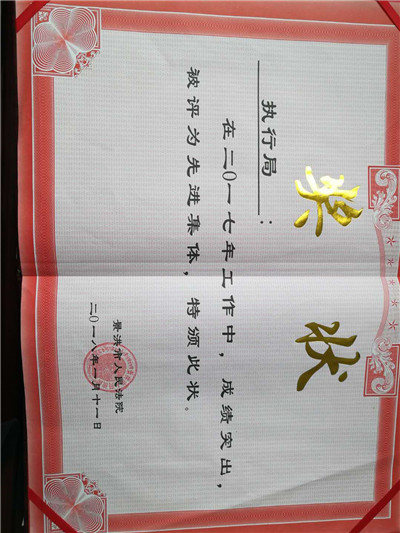 奖状
执行局：
在二〇一七年工作中，成绩突出，
被评为先进集体，特颁此状。
景洪市人民法院
二〇一八年一月十一日